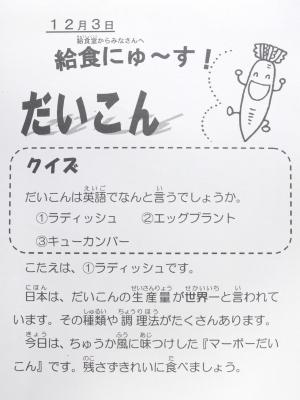 12月3日
給食室からみなさんへ
給食にゅ～す！
だいこん
クイズ
だいこんは英語でなんと言うでしょうか。
①ラディッシュ　②エッグプラント
③キューカンバー
こたえは、①ラディッシュです。
日本は、だいこんの生産量が世界一と言われて
います。その種類や調理法がたくさんあります。
今日は、ちゅうか風に味つけした『マーボーだい
こん』です。残さずきれいに食べましょう。